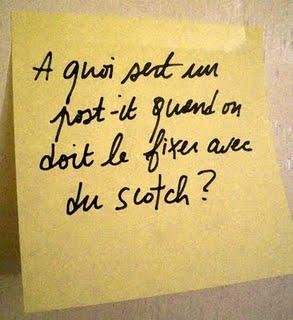 A quoi sert un
post-it quand on
doit le fixer avec
du scotch ?